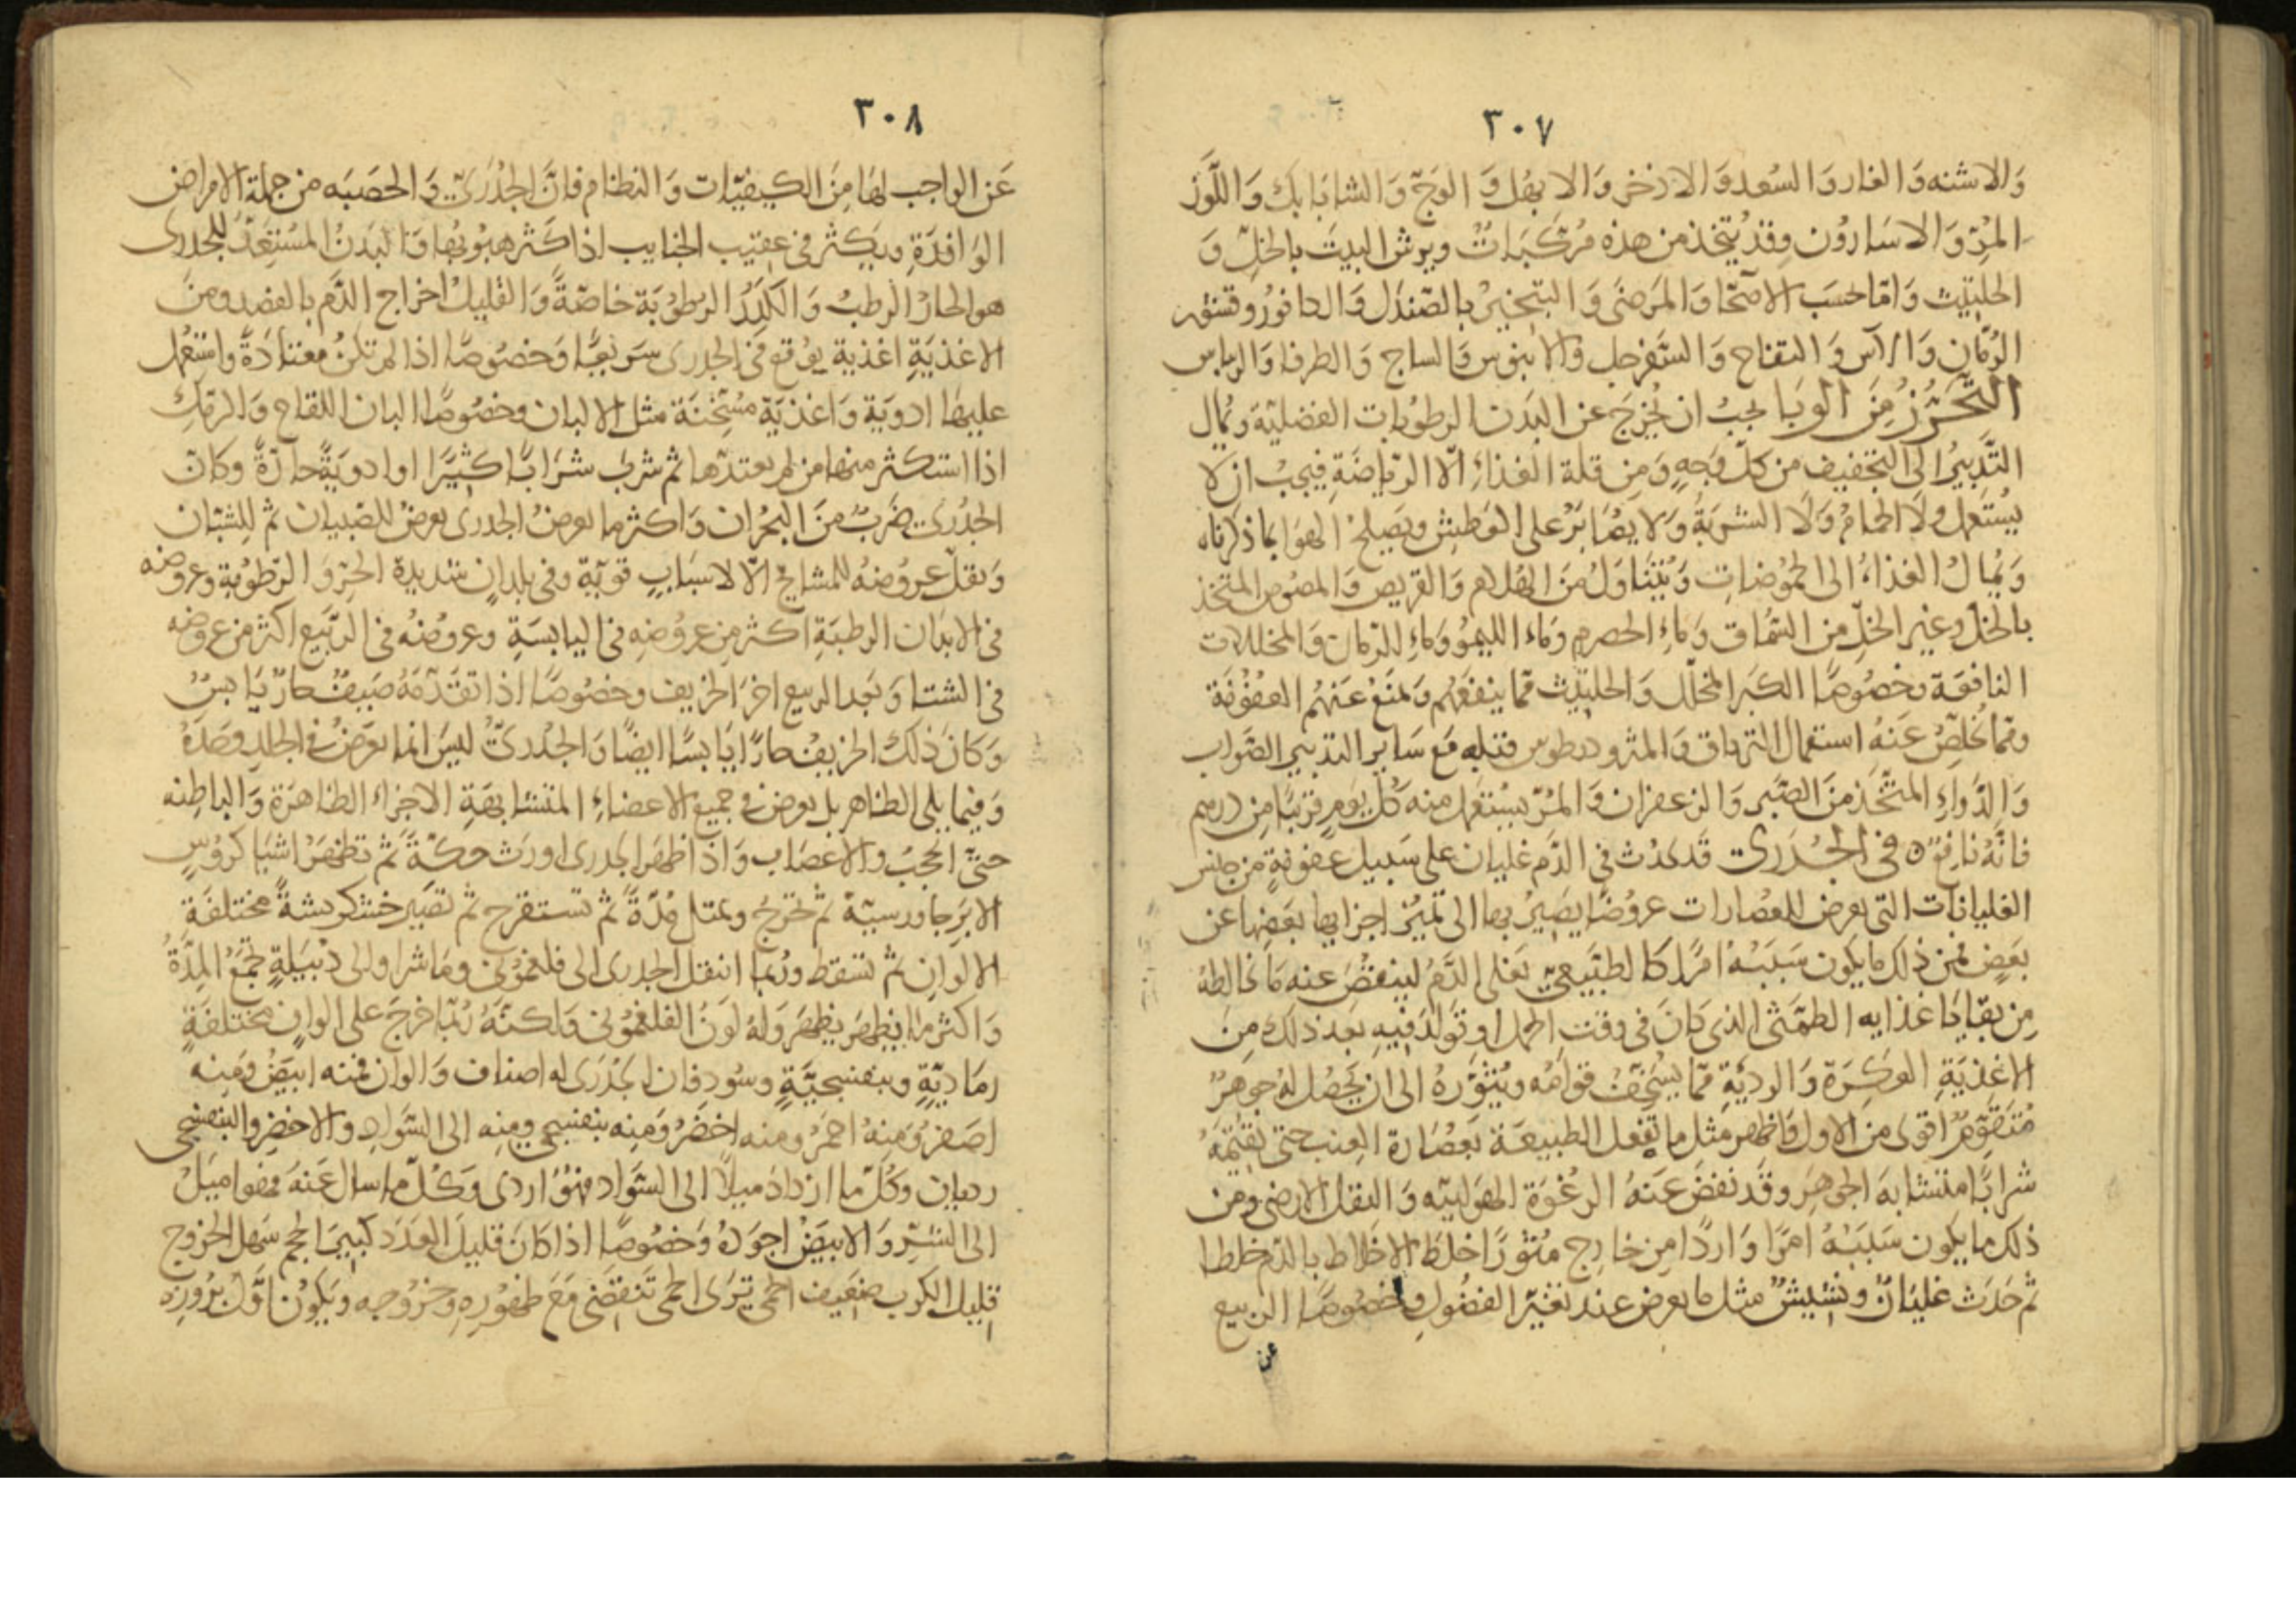 ٣٠٧
وَالاشنه وَالغار وَالسُعد وَالاذخر وَالابهُل وَالوَجّ وَالشابَابك وَاللَّوز
المُرّ وَالاسَارُون وقدُ يتخذ من هذه مُركبَاتٌ ويرش البيت بالخلّ وَ
الحلِتيْت وَامّا حسَب الاصحّا وَالمَرضَى وَالتبخيرُ بالصّندَل وَالكافورُ وقشر
الرُمّان وَالآس وَالتفاح وَالسَّفرجل وَالابنوس وَالساج وَالطرفا وَالريباس
التَّحَرُّزُ مِنَ الوَبَا يجبُ ان يُخرَجَ عن البَدَن الرطوُبات الفضليّة وَيمال
التَّدبيرُ الى التجفيف من كلّ وَجهٍ وَمِن قلة الغذاءِ الّا الرّياضَةِ فيجبُ ان لا
يُستَعمل ولَا الحمامُ وَلَا الشربةُ وَلا يصَابَرُ على العَطش ويصَلحُ الهوَا بما ذكرناه
وَيُمالُ الغذاءُ الى الحمُوضاتِ وَيُتنَاوَلُ مِنَ الهُلام وَالقريص وَالمصُوص المتخذ
بالخلّ وغير الخلّ من السُمّاق وَماءِ الحصرمِ وَماءِ الليمُو وَماءِ الرّمان وَالمخللات
النافعَة وخصُوصًا الكبَر المخلّل وَالحلِتيْث ممّا ينفعَهُم وَيمنَعُ عَنهُم العفُوْنَة
وممّا يُخلِّصُ عَنهُ استعمالُ الترياق وَالمثروديطوس قبله مَع سَاير التدبير الصَّواب
وَالدَّواءِ المتَّخَذ مِنَ الصَّبَر وَالزعفران وَالمُرّ يُسْتعَمل منه كُلّ يَومٍ قرَيبًا مِن درهم
فانّهُ نافِعٌ ٥ في الجُدَرِىّ قَد يحدُث في الدَّم غليان على سَبيل عفونةٍ من جنس
الغليانَات التى يعرض للعُصَارات عروُضًا يصِيرُ بها الى تميُّز اجزايها بعَضِها عن
بعَضٍ فمن ذلك ما يكون سَبَبُهُ امرًا كالطبَيعىّ يغلى الدَّمُ لينفضَ عنه مَا يخالطهُ
مِن بقَايَا غذايه الطمَّثى الذى كَانَ فى وقت الحمل او توَلّدَ فيهِ بَعد ذلك مِنَ
الاغذيَةِ العَكِرَة وَالرديَّةِ ممّا يسُخِّفُ قوَامَه ويُثوِّرهُ الى ان يَحصُلَ لهُ جوهرٌ
مُتَقوِّمٌ اقوى من الاول وَاظهر مثل ما تفعل الطبيعَة بعَصَارة العِنب حتى تقيمَهُ
شرابًا متشابهَ الجوهَر وقَد نفضَ عَنهُ الرغُوَة الهوَائيّه وَالثقل الارضى ومن
ذلك ما يكون سَبَبُهُ امرًا وَاردًا مِن خارج مثُوّرًا خلطَ الاخلاط بالدم خلطا
ثم حَدَث غليَانٌ ونشِيشٌ مثل ما يعرض عند تغيّر الفصُولِ وخصُوصًا الربيع
عن
٣٠٨
عَن الواجب لهَا مِنَ الكيفيّات وَالنظام فانَّ الجُدَرىّ وَالحصَبَه من جملة الامراض
الوَافدَةِ ويكَثر فى عقيب الجنايب اذا كَثر هبوُبهُا وَالبَدنُ المسُتَعِدّ للجدرى
هو الحارُ الرطبُ وَالكَدِرُ الرطوُبَة خاصّةً وَالقليلُ اخراج الدَّم بالفصد ومنَ
الاغذيَةِ اغذية يوُقع فى الجدرى سَريعًا وَخصُوصًا اذا لم تكنُ معتادَةً واستعُمل
عليهَا ادويَة وَاغذيَة مسُخنَة مثل الالبان وخصُوصًا البان اللقاح وَالرمَك
اذا استكثر منها من لم يعتدّها ثم شربَ شرَابًا كثيَرًا او ادويَةً حَارّةً وكانَ
الجدُرىّ ضَربٌ منَ البحُران وَاكثر ما يعرضُ الجدرى يعرضُ للصّبيان ثم للِشُبّان
وَيقلّ عروُضهُ للمشايخ الّا لاسبَابٍ قويّة وفى بلدانٍ شديدة الحرّ وَالرّطوُبة وعروضه
فى الابدَان الرطبَةِ اكثر مِن عرُوضهِ فى اليابسَةِ وعروُضُهُ فى الرّبَيع اكثر من عروضه
فى الشتا وَبَعد الربيع اخرَ الخريف وخصُوصًا اذا تقدّمَهُ صَيفٌ حارٌ يَابسٌ
وَكانَ ذلك الخريفُ حارًا يَابسًا ايضًا وَالجدُرىُّ ليسَ انما يعَرضُ فى الجلدِ وحَدَهُ
وَفيما يلى الظاهر بل يعرض فى جميع الاعضاءِ المتشابهَةِ الاجزاء الظاهرَة وَالباطِنه
حتّى الحجُبُ والاعصَاب وَاذا ظهَر الجَدرى اورَث حكّةً ثم تظهَرُ اشيَا كرُؤسٍ
الابَرِ جاورسيّة ثم تخرجُ وتمتلى مِدّةً ثم تستقرح ثم تصَير خشكريشةً مختلفَةِ
الالوان ثم تسقط ورُبما انتقل الجدرى الى فلغموُنى وماشرا والى دبَيلةٍ تجمَعُ المِدَّةَ
وَاكثر ما يظهَرَ يظهَرَ وَلهُ لوَنُ الفلغمُونى وَلكنّهُ رُبّما خرجَ على الوانٍ مختلفَةٍ
رمَاديّةٍ وبنفسَجيَّةٍ وسُودٍ فان الجُدَرى له اصناف وَالوان فمنه ابيَضُ ومَنِه
اصَفرُ وَمِنهُ احمرُ ومنه اخضَرُ وَمِنه بنفسجى ومِنه الى السَّوادِ والاخضر والبنفسجى
رديان وكُلّ ما ازدادَ ميلاً الى السَّوَاد فهُوَ اردى وكُلّ ما سال عَنهُ فهو اميَلُ
الى الشرّ وَالابيَضُ اجوَدهُ وَخصُوصًا اذا كانَ قليلَ العَدَد كبيرَ الحجم سَهل الخروج
قليل الكرب ضعَيف الحمّى تَرَى الحمى تَنقصُ مَعَ ظهوُرهِ وخرُوجهِ وَيكوُن اوَّلَ بروُزه